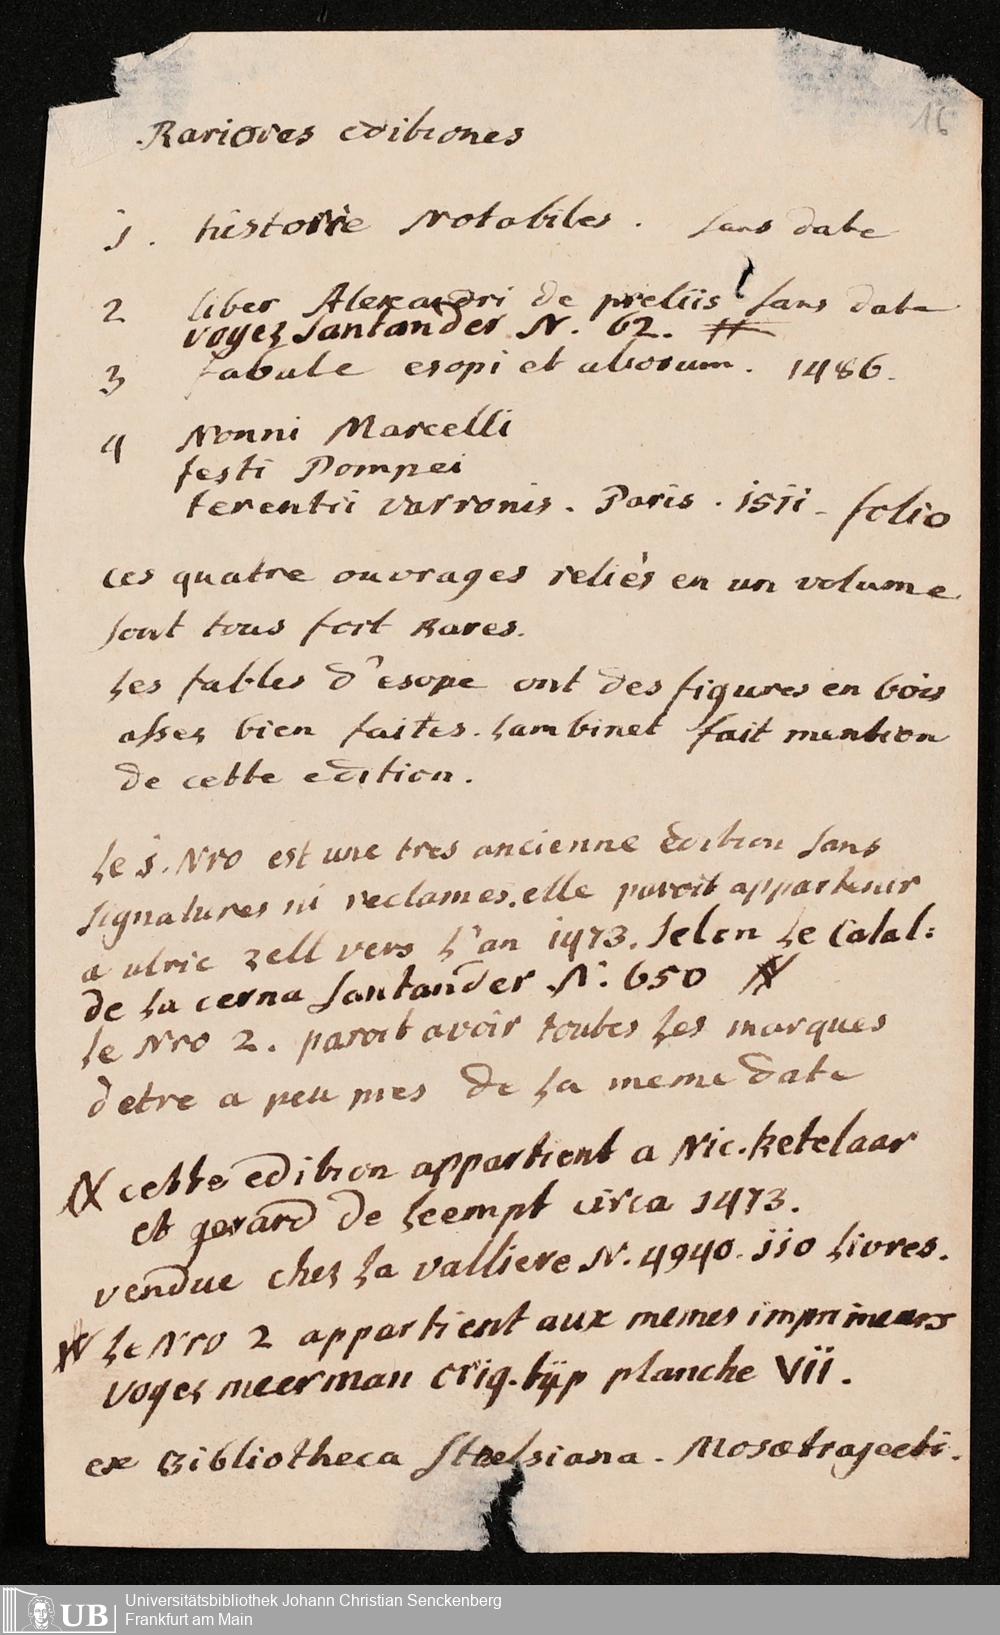 16
Rariores editiones
1. historie Notabiles. sans date
2 liber Alexandri de preliis sans date
voyez Santander N. 62. #
3 fabule esopi et aliorum. 1486.
4 Nonni Marcelli
festi Pompei
terentii varronis. Paris. 1511 - folio
ces quatre ouvrages reliés en un volume
sont tous fort Rares.
Les fables d'esope ont des figures en bois
assez bien faites. Lambinet fait mention
de cette edition.
Le 1. Nro est une tres ancienne edition sans
signatures ni reclames. elle paroit appartenir
a ulric zell vers l'an 1473. Selon le Catal:
de la cerna Santander N. 650
le Nro 2. paroit avoir toutes les marques
detre a peu pres de la meme date
cette edition appartient a Nic. Ketelaar
et gerard de Leempt circa 1473.
vendue chez la valliere N. 4940. 110 livres.
# Le Nro 2 appartient aux memes imprimeurs
voyez meerman orig. typ planche VII.
ex Bibliotheca Stelsiana. Mosætrajecti.
UB
Universitätsbibliothek Johann Christian Senckenberg
Frankfurt am Main